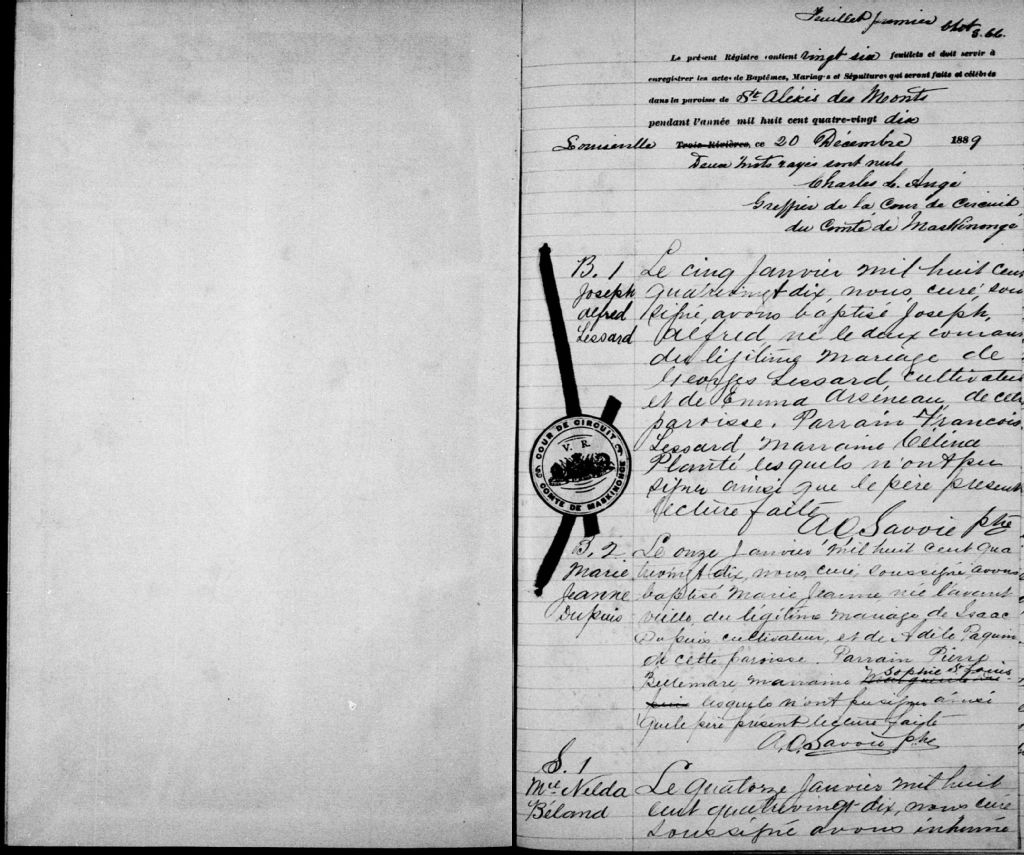 Feuillet premier
Le présent Régistre contient vingt six feuillets et doit servir à
enregistrer les actes de Baptêmes, Mariages et Sépultures qui seront faits et célébrés
dans la paroisse de St Aléxis des Monts
pendant l'année mil huit cent quatre-vingt dix
Louiseville Trois-Rivières, ce 20 Décembre 1889
Deux mots rayés sont nuls
Charles L. Angé
Greffier de la Cour de Circuit
du Comté de Maskinongé
B. 1
Joseph
Alfred
Lessard
Le cinq Janvier mil huit cent
quatrevingt dix, nous, curé, sous
signé, avons baptisé Joseph,
Alfred né le deux courant
du légitime mariage de
Georges Lessard, cultivateur
et de Emma Arséneau, de cette
paroisse. Parrain François
Lessard Marraine Célina
Planté lesquels n'ont pu
signer ainsi que le père present
lecture faite
A O Savoie ptre
COUR DE CIRCUIT
V. R.
COMTÉ DE MASKINONGÉ
B. 2
Marie
Jeanne
Dupuis
Le onze Janvier mil huit cent qua
trevingt dix, nous, curé, soussigné avons
baptisé Marie Jeanne née l'avant
veille, du légitime mariage de Isaac
Dupuis cultivateur, et de Adèle Paquin
de cette paroisse. Parrain Pierre
Bellemare marraine Sophie St Louis
lesquels n'ont pu signer ainsi
que le père présent lecture faite
A. O. Savoie ptre
S. 1
Mie Nelda
Béland
Le quatorze Janvier mil huit
cent quatrevingt-dix, nous curé
soussigné avons inhumé